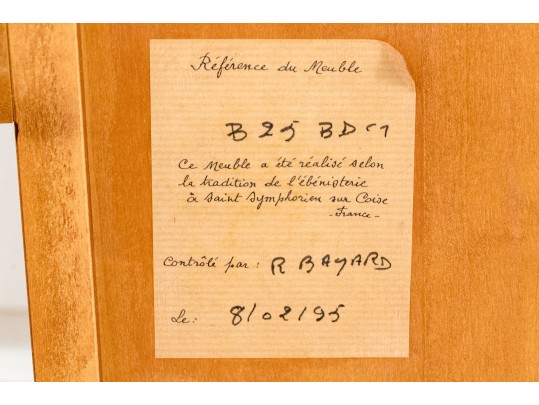 Référence du Meuble
B 25 BD
Ce Meuble a été réalisé selon
la tradition de l'ébénisterie
à Saint Symphorien sur Coise
- France -
Contrôlé par : R BAYARD
Le : 8/02/95